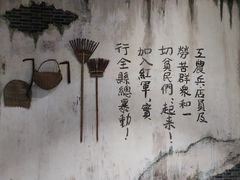 工農兵店員及
勞苦群衆和一
切貧民們：起來！
加入紅軍，實
行全縣總暴動！